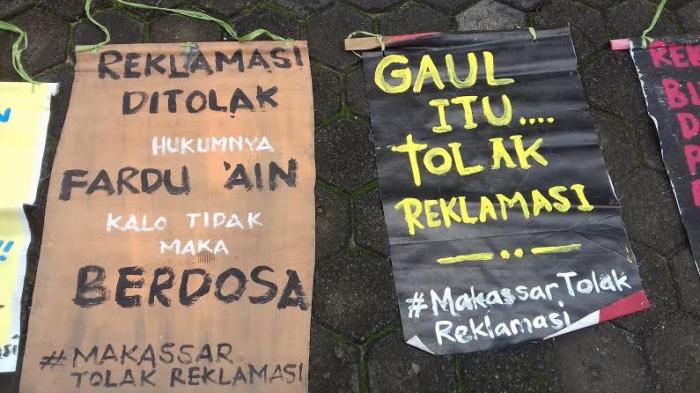 REKLAMASI
DITOLAK
HUKUMNYA
FARDU 'AIN
KALO TIDAK
MAKA
BERDOSA
#MAKASSAR
TOLAK REKLAMASI
GAUL
ITU....
TOLAK
REKLAMASI
#MakassarTolak
Reklamasi